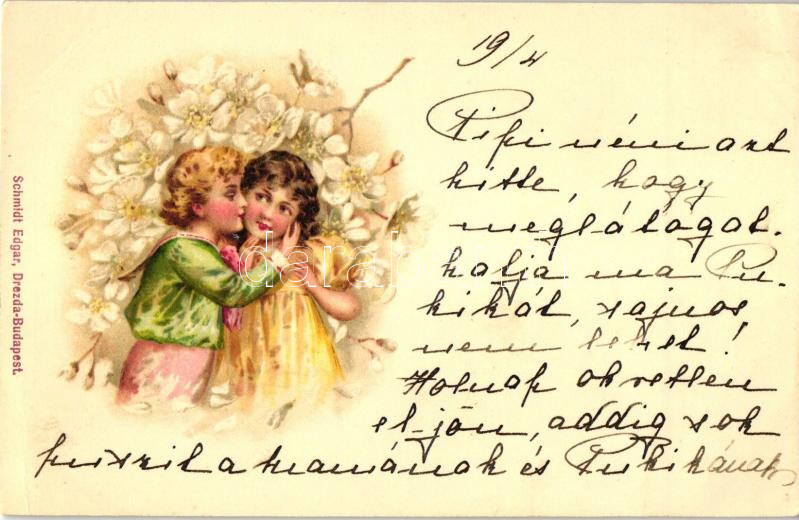 19/4
Pipi néni azt
hitte, hogy
meglátogat-
hatja ma Pu-
kikát, sajnos
nem lehet!
Holnap okvetlen
eljön, addig sok
puszit a mamának és Pukikának
Schmidt Edgar, Drezda-Budapest.
darabanth